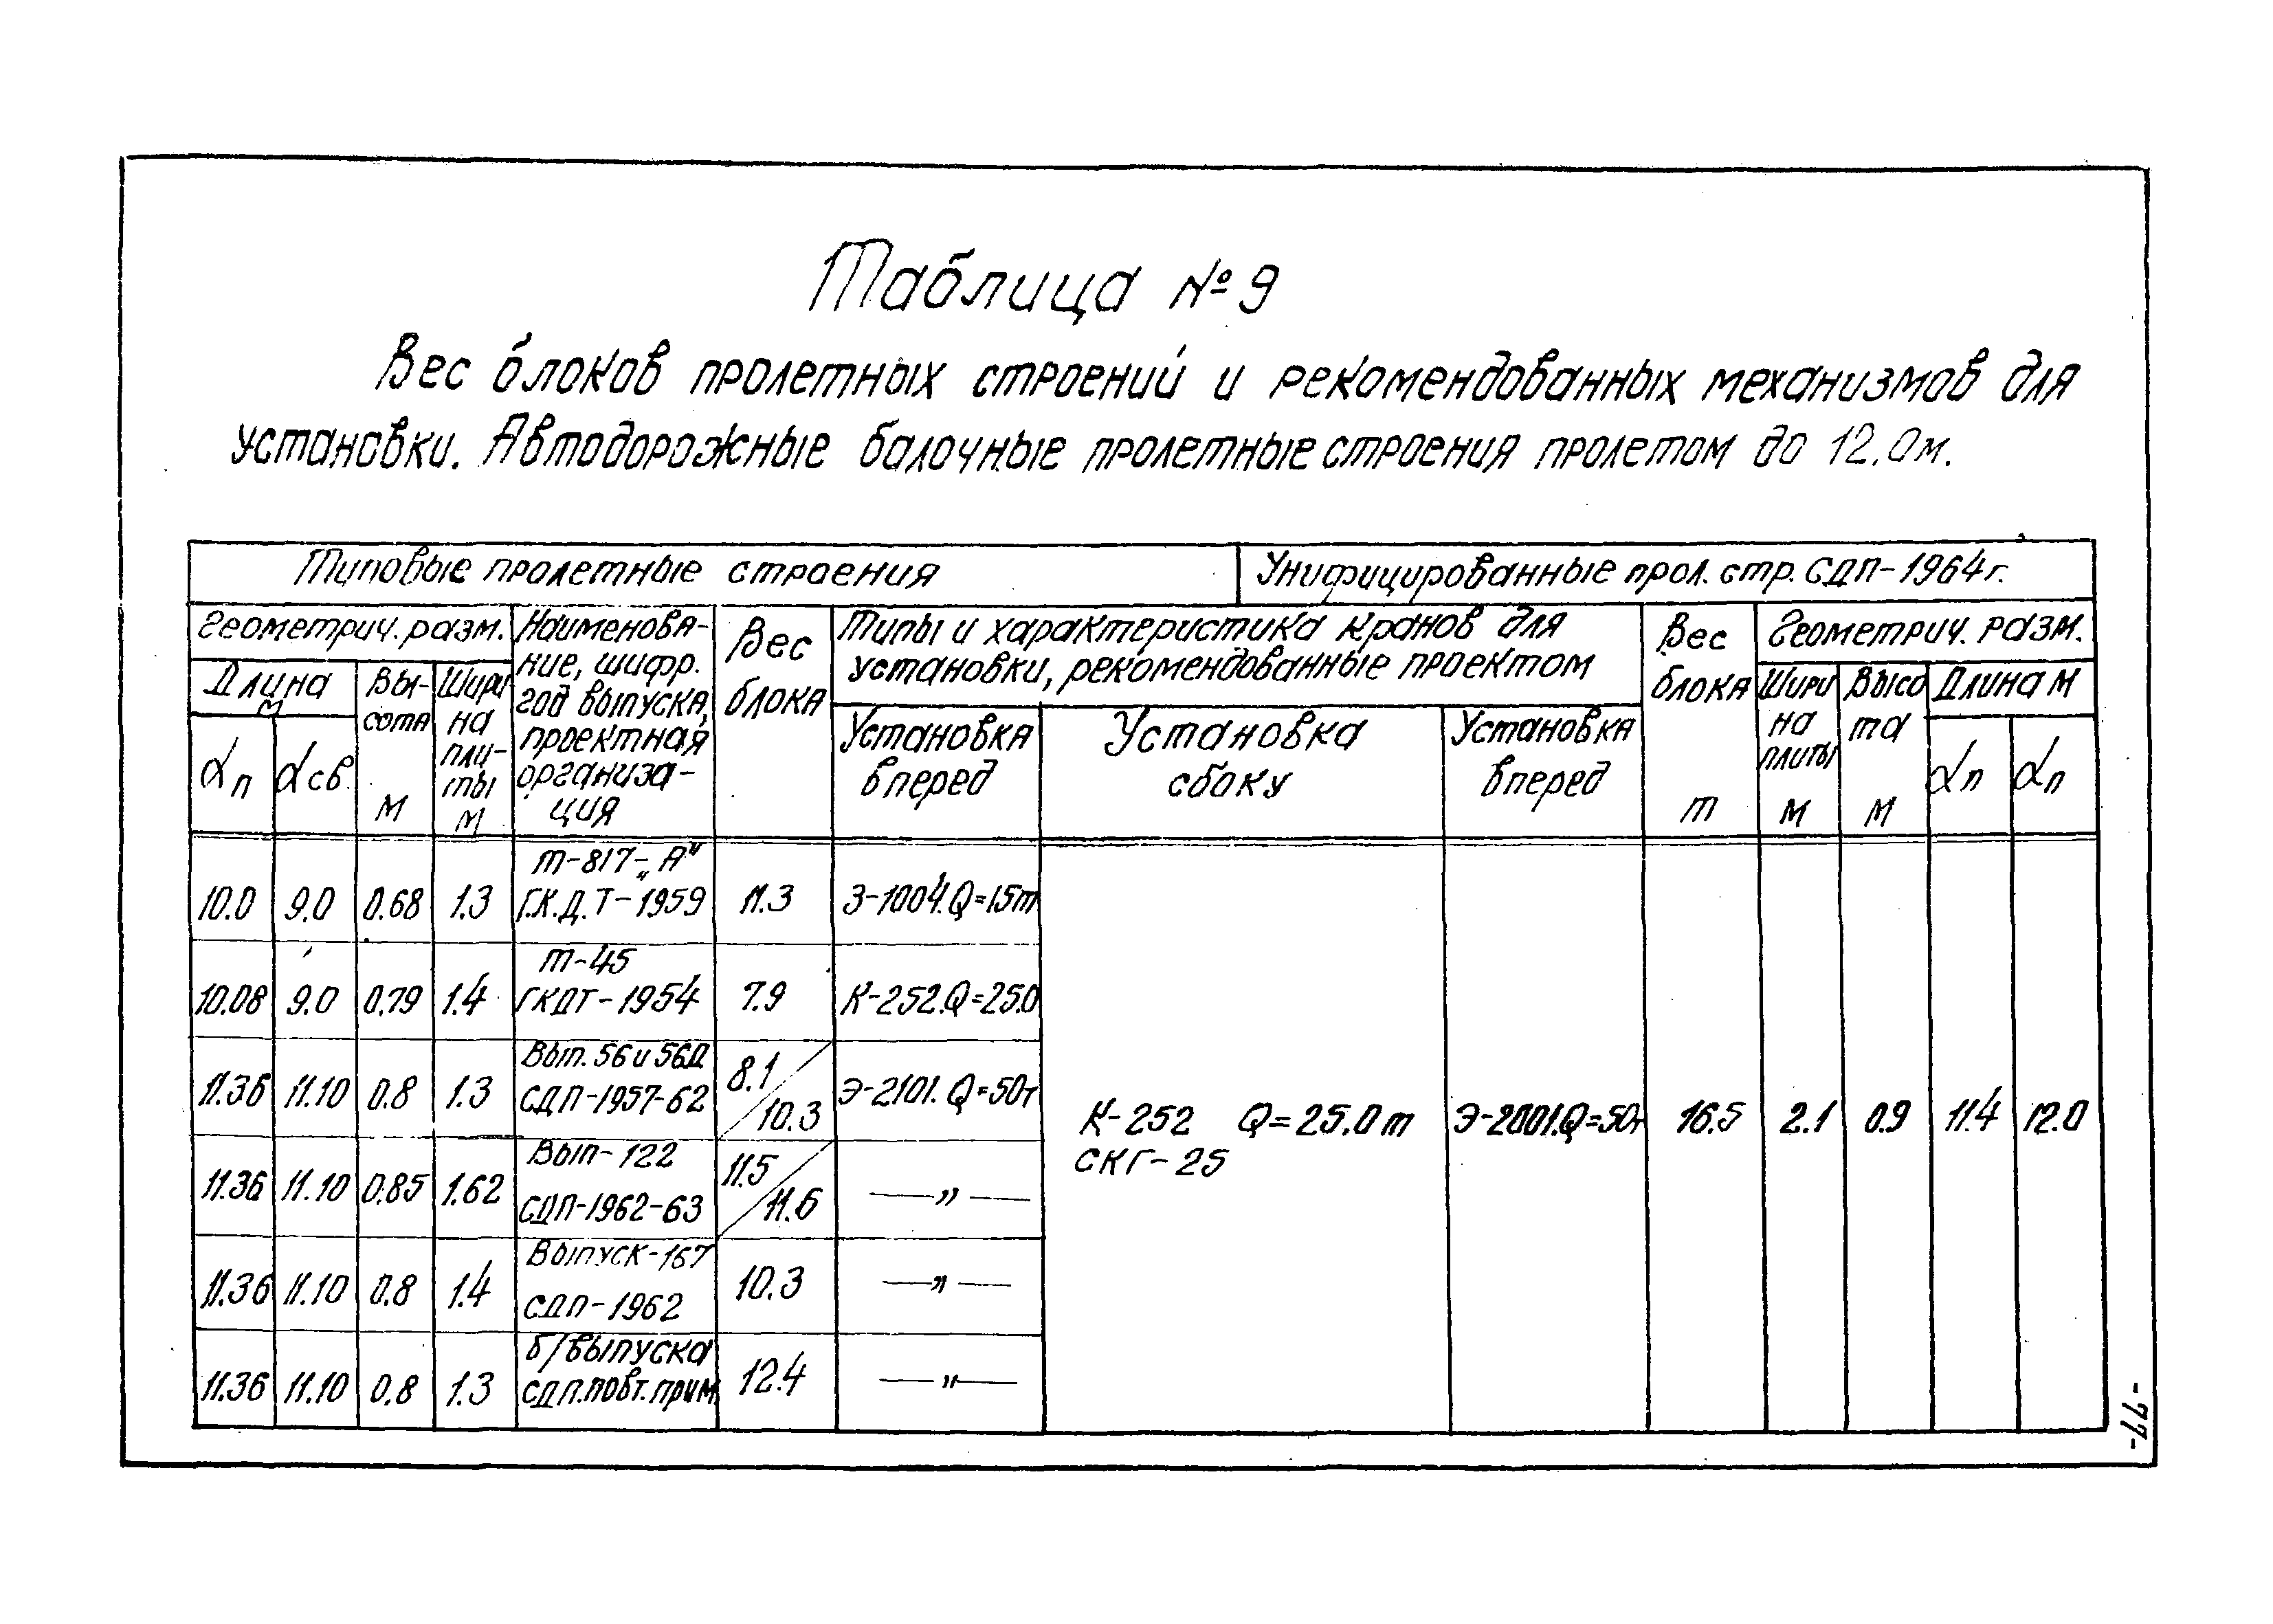 Таблица № 9
Вес блоков пролетных строений и рекомендованных механизмов для
установки. Автодорожные балочные пролетные строения пролетом до 12.0м.
Типовые пролетные строения Унифицированные прол. стр. СДП-1964г.
Геометрич. разм. Наименова-ние, шифр. год выпуска, проектная организа-ция Вес блока Типы и характеристика кранов для установки, рекомендованные проектом Вес блока т Геометрич. разм.
Длина м Вы-сота м Шири на пли-ты м Установка вперед Установка сбоку Установка вперед Шири на плиты м Высо та м Длина м
αп αсв. αп αп
10.0 9.0 0.68 1.3 т-817-„А" Г.К.Д.Т-1959 11.3 Э-1004.Q=15т
10.08 9.0 0.79 1.4 т-45 ГКДТ-1954 7.9 К-252.Q=25.0
11.36 11.10 0.8 1.3 Вып. 56 и 56Д СДП-1957-62 8.1/10.3 Э-2101. Q=50т
К-252 Q=25.0т Э-2001.Q=50т 16.5 2.1 0.9 11.4 12.0
СКГ-25
11.36 11.10 0.85 1.62 Вып-122 СДП-1962-63 11.5/11.6 —„—
11.36 11.10 0.8 1.4 Выпуск-167 СДП-1962 10.3 —„—
11.36 11.10 0.8 1.3 б/выпуска СДП.повт.прим. 12.4 —„—
-77-